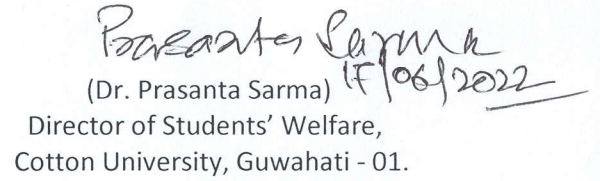 Prasanta Sarma
17/06/2022
(Dr. Prasanta Sarma)
Director of Students' Welfare,
Cotton University, Guwahati - 01.